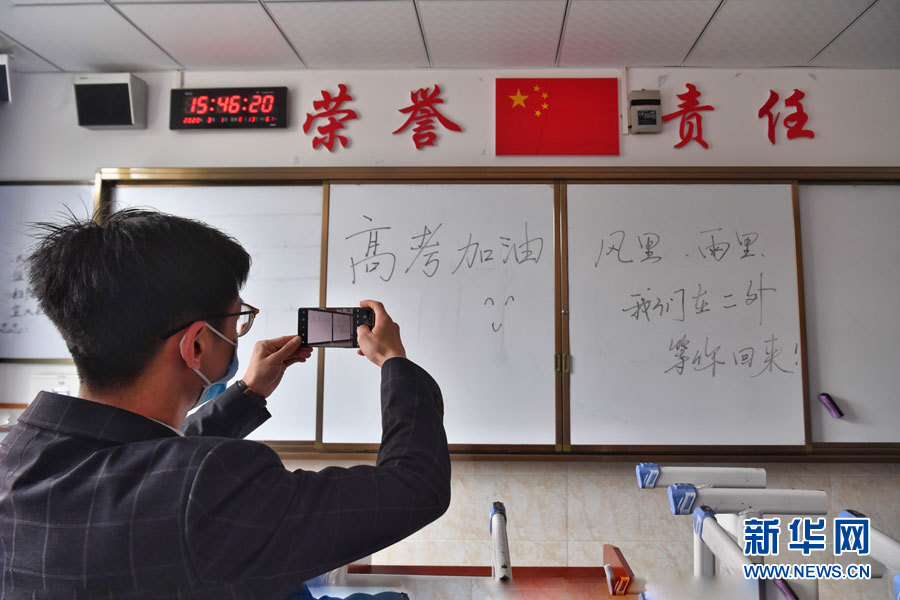 15:46:20
荣誉 责任
高考加油
风里.雨里.
我们在二外
等你回来!
新华网
WWW.NEWS.CN